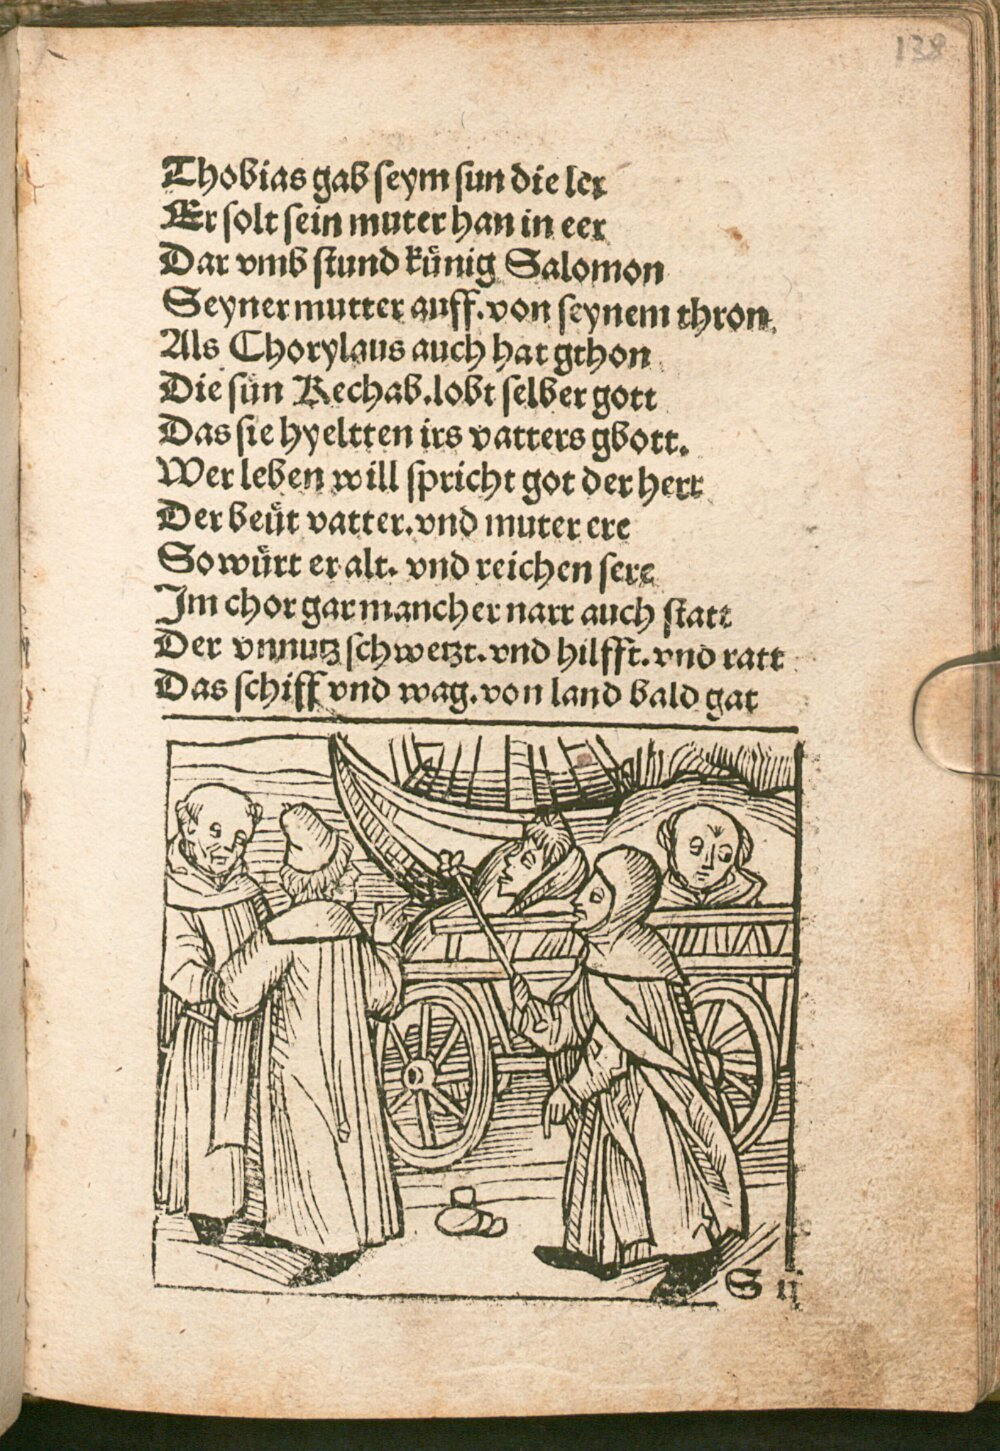 138
Thobias gab seym sun die ler
Er solt sein muter han in eer
Dar vmb stund künig Salomon
Seyner mutter auff. von seynem thron
Als Chorylaus auch hat gthon
Die sün Rechab. lobt selber gott
Das sie hyeltten irs vatters gbott.
Wer leben will spricht got der herr
Der beüt vatter. vnd muter ere
So würt er alt. vnd reichen sere
Im chor gar mancher narr auch statt
Der vnnutz schwetzt. vnd hilfft. vnd ratt
Das schiff vnd wag. von land bald gat
S ij